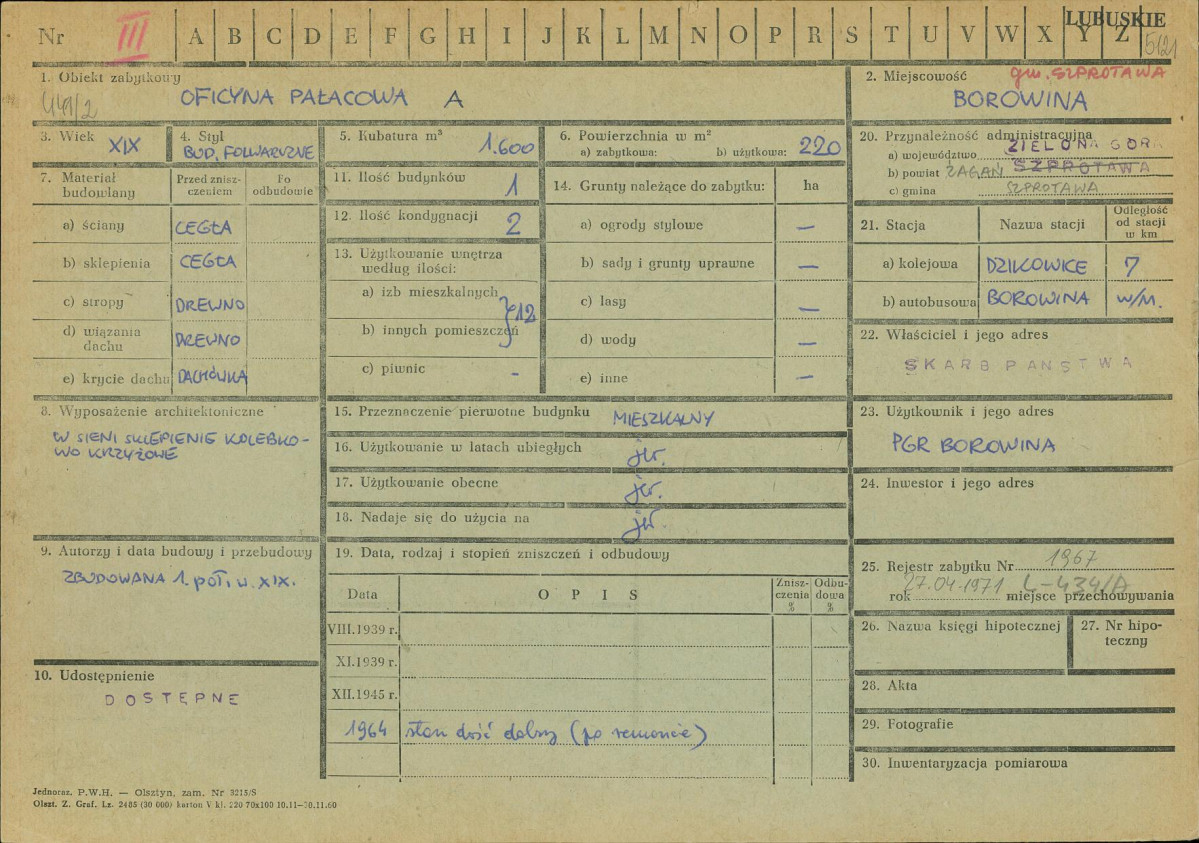 Nr III A B C D E F G H I J K L M N O P R S T U V W X Y Z
LUBUSKIE
5621
1. Obiekt zabytkowy
OFICYNA PAŁACOWA A
2. Miejscowość gm. SZPROTAWA
BOROWINA
3. Wiek XIX
4. Styl
BUD. FOLWARCZNE
5. Kubatura m³ 1.600
6. Powierzchnia w m²
a) zabytkowa: b) użytkowa: 220
7. Materiał budowlany
Przed znisz-
czeniem
Po
odbudowie
a) ściany CEGŁA
b) sklepienia CEGŁA
c) stropy DREWNO
d) wiązania
dachu DREWNO
e) krycie dachu DACHÓWKA
8. Wyposażenie architektoniczne
W SIENI SKLEPIENIE KOLEBKO-
WO KRZYŻOWE
9. Autorzy i data budowy i przebudowy
ZBUDOWANA 1. POŁ. W. XIX.
10. Udostępnienie
DOSTĘPNE
11. Ilość budynków 1
12. Ilość kondygnacji 2
13. Użytkowanie wnętrza
według ilości:
a) izb mieszkalnych
b) innych pomieszczeń } 12
c) piwnic -
14. Grunty należące do zabytku: ha
a) ogrody stylowe —
b) sady i grunty uprawne —
c) lasy —
d) wody —
e) inne —
15. Przeznaczenie pierwotne budynku MIESZKALNY
16. Użytkowanie w latach ubiegłych jw.
17. Użytkowanie obecne jw.
18. Nadaje się do użycia na jw.
19. Data, rodzaj i stopień zniszczeń i odbudowy
Data
O P I S
Znisz-
czenia
%
Odbu-
dowa
%
VIII.1939 r.
XI.1939 r.
XII.1945 r.
1964 stan dość dobry (po remoncie)
20. Przynależność administracyjna
a) województwo ZIELONA GÓRA
b) powiat ŻAGAŃ SZPROTAWA
c) gmina SZPROTAWA
21. Stacja
Nazwa stacji
Odległość
od stacji
w km
a) kolejowa DZIKOWICE 7
b) autobusowa BOROWINA w/m.
22. Właściciel i jego adres
SKARB PAŃSTWA
23. Użytkownik i jego adres
PGR BOROWINA
24. Inwestor i jego adres
25. Rejestr zabytku Nr 1967
rok 27.04.1971 miejsce przechowywania L-434/A
26. Nazwa księgi hipotecznej
27. Nr hipo-
teczny
28. Akta
29. Fotografie
30. Inwentaryzacja pomiarowa
Jednoraz. P.W.H. — Olsztyn, zam. Nr 3215/S
Olszt. Z. Graf. Lz. 2485 (30 000) karton V kl. 220 70x100 10.11—30.11.60